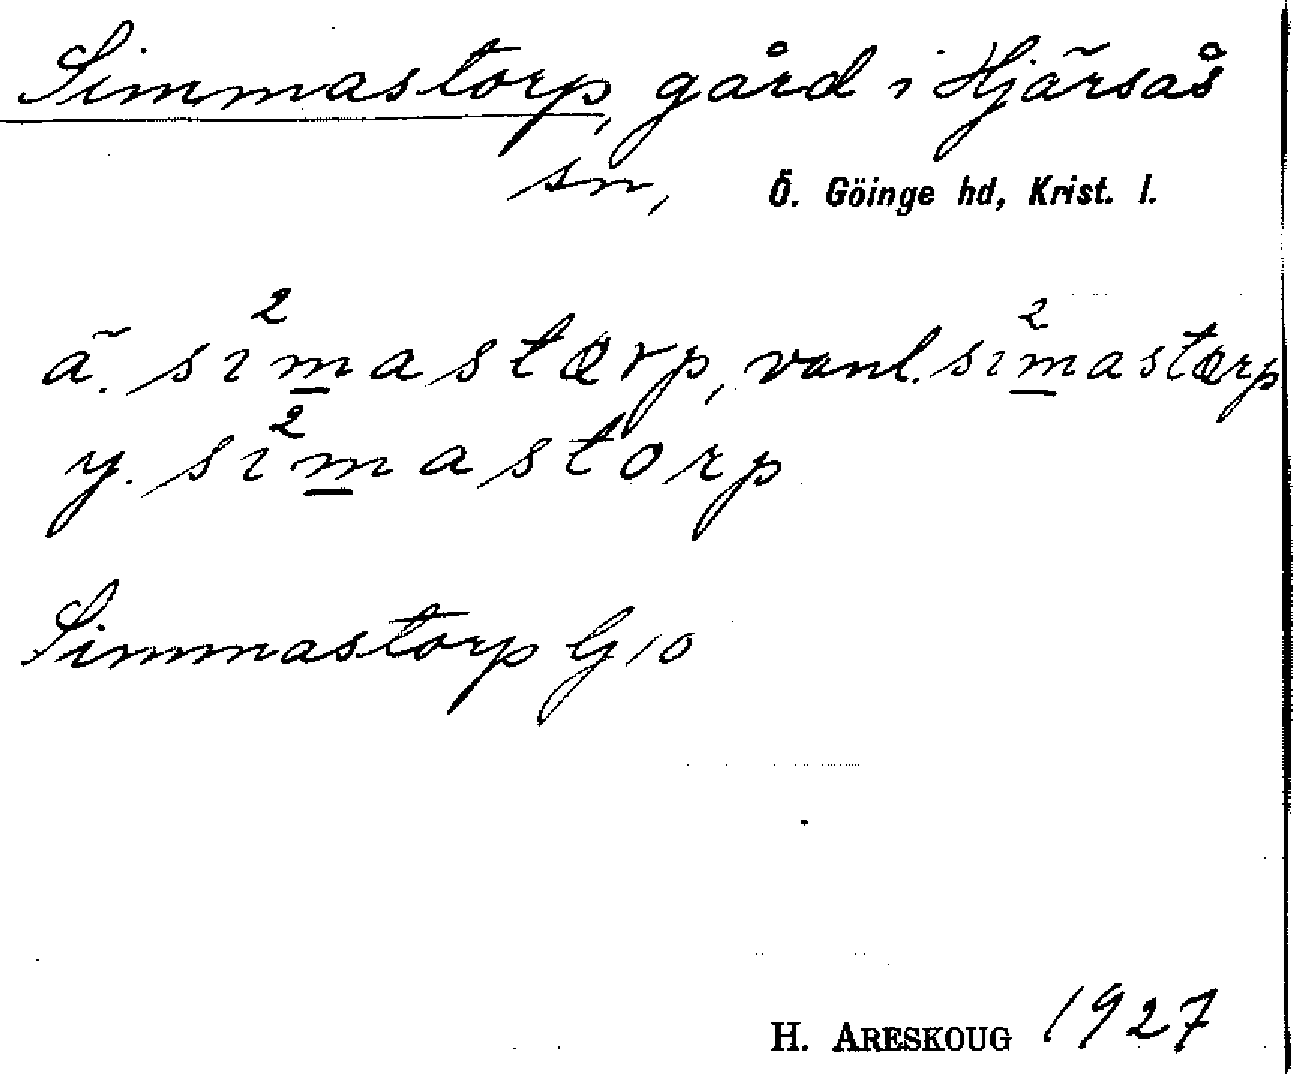 Simmastorp, gård i Hjärsås
sn, Ö. Göinge hd, Krist. l.
ä. si²mastærp, vanl. si²mastærp
y. si²mastorp
Simmastorp G 10
H. ARESKOUG 1927